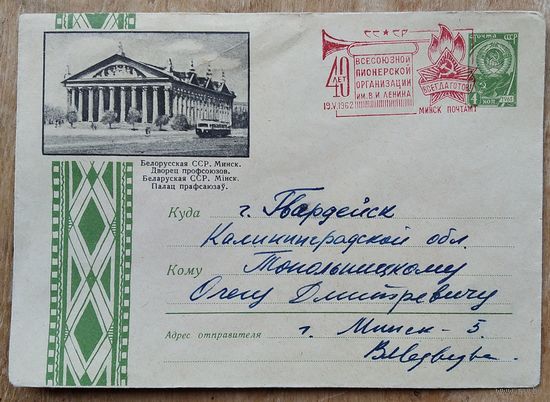 СС★СР
40 ЛЕТ
ВСЕСОЮЗНОЙ
ПИОНЕРСКОЙ
ОРГАНИЗАЦИИ
ИМ. В.И. ЛЕНИНА
19.V.1962
ВСЕГДА ГОТОВ!
МИНСК ПОЧТАМТ
ПОЧТА СССР
4 КОП
Белорусская ССР. Минск.
Дворец профсоюзов.
Беларуская ССР. Мінск.
Палац прафсаюзаў.
Куда г. Гвардейск
Калининградской обл.
Кому Топольницкому
Олегу Дмитревичу
Адрес отправителя г. Минск-5